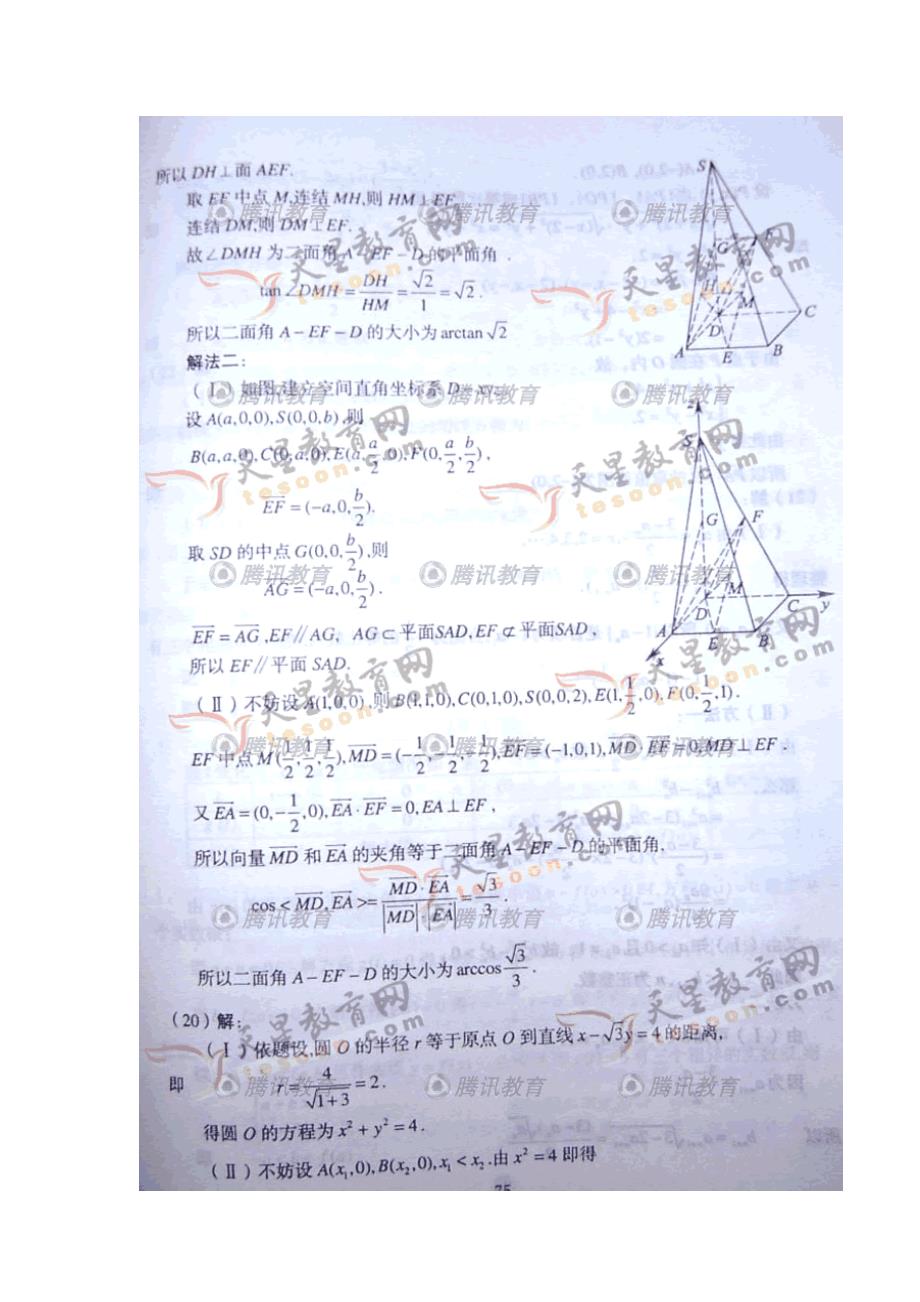 所以 DH⊥面 AEF.
取 EF 中点 M,连结 MH,则 HM⊥EF
连结 DM,则 DM⊥EF.
故∠DMH 为二面角 A-EF-D 的平面角 .
tan∠DMH = DH/HM = √2/1 = √2 .
所以二面角 A-EF-D 的大小为 arctan √2
解法二:
(Ⅰ)如图,建立空间直角坐标系 D-xyz
设 A(a,0,0),S(0,0,b),则
B(a,a,0),C(0,a,0),E(a,a/2,0),F(0,a/2,b/2),
EF = (-a,0,b/2).
取 SD 的中点 G(0,0,b/2),则
AG = (-a,0,b/2) .
EF = AG ,EF∥AG, AG⊂平面SAD,EF⊄平面SAD,
所以 EF∥平面 SAD.
(Ⅱ)不妨设 A(1,0,0) ,则 B(1,1,0),C(0,1,0),S(0,0,2),E(1,1/2,0),F(0,1/2,1).
EF 中点 M(1/2,1/2,1/2),MD = (-1/2,-1/2,-1/2),EF = (-1,0,1),MD·EF = 0,MD⊥EF .
又 EA = (0,-1/2,0),EA·EF = 0,EA⊥EF ,
所以向量 MD 和 EA 的夹角等于二面角 A-EF-D 的平面角.
cos < MD,EA >= MD·EA/|MD|·|EA| = √3/3 .
所以二面角 A-EF-D 的大小为 arccos √3/3 .
(20)解:
(Ⅰ)依题设,圆 O 的半径 r 等于原点 O 到直线 x-√3y=4 的距离,
即 r = 4/√1+3 = 2 .
得圆 O 的方程为 x² + y² = 4 .
(Ⅱ)不妨设 A(x₁,0),B(x₂,0),x₁ < x₂ .由 x² = 4 即得
75
S
G
F
H
M
D
C
A
E
B
z
S
G
F
M
D
C
y
A
E
B
x
天星教育网
tesoon.com
腾讯教育